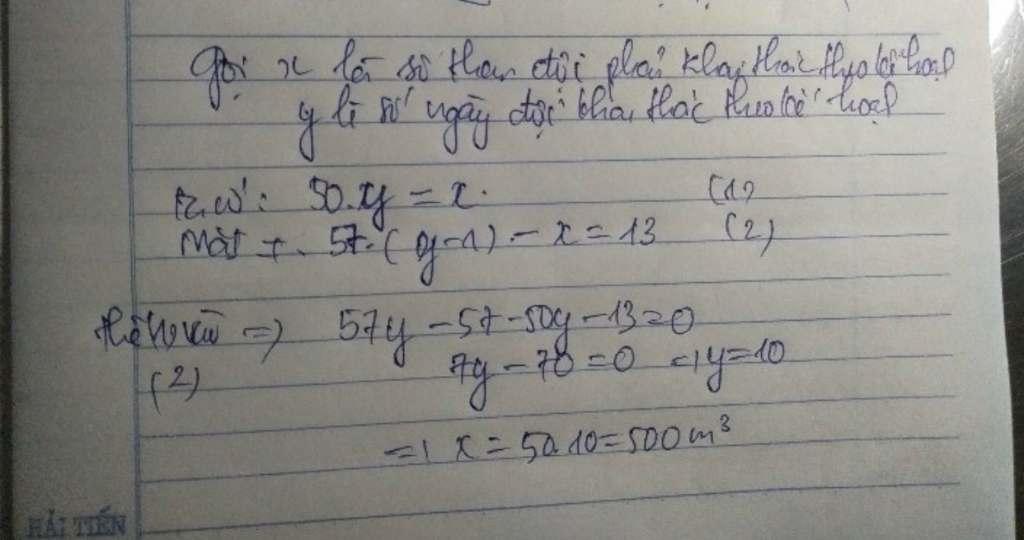 Gọi x là số than đội phải khai thác theo kế hoạch
y là số ngày đội khai thác theo kế hoạch
Ta có: 50.y = x. (1)
Mặt ≠. 57.(y-1) - x = 13 (2)
thế (1) vào => 57y - 57 - 50y - 13 = 0
(2) 7y - 70 = 0 => y = 10
=> x = 50.10 = 500 m³
HẢI TIẾN